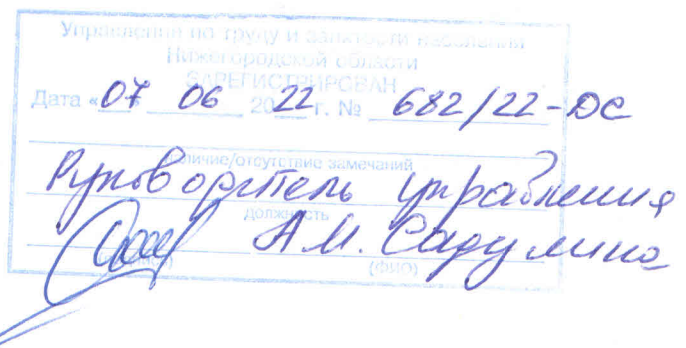 Управление по труду и занятости населения
Нижегородской области
ЗАРЕГИСТРИРОВАН
Дата «07 06 2022 г. № 682/22-ДС
наличие/отсутствие замечаний
Руководитель управления
должность
А.М. Садулина
(ФИО)